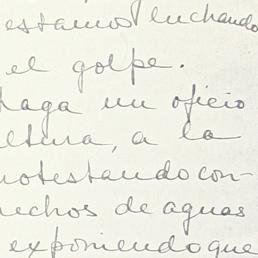 estamos luchando
el golpe.
haga un oficio
ltura, a la
rotestando con-
rechos de aguas
exponiendo que